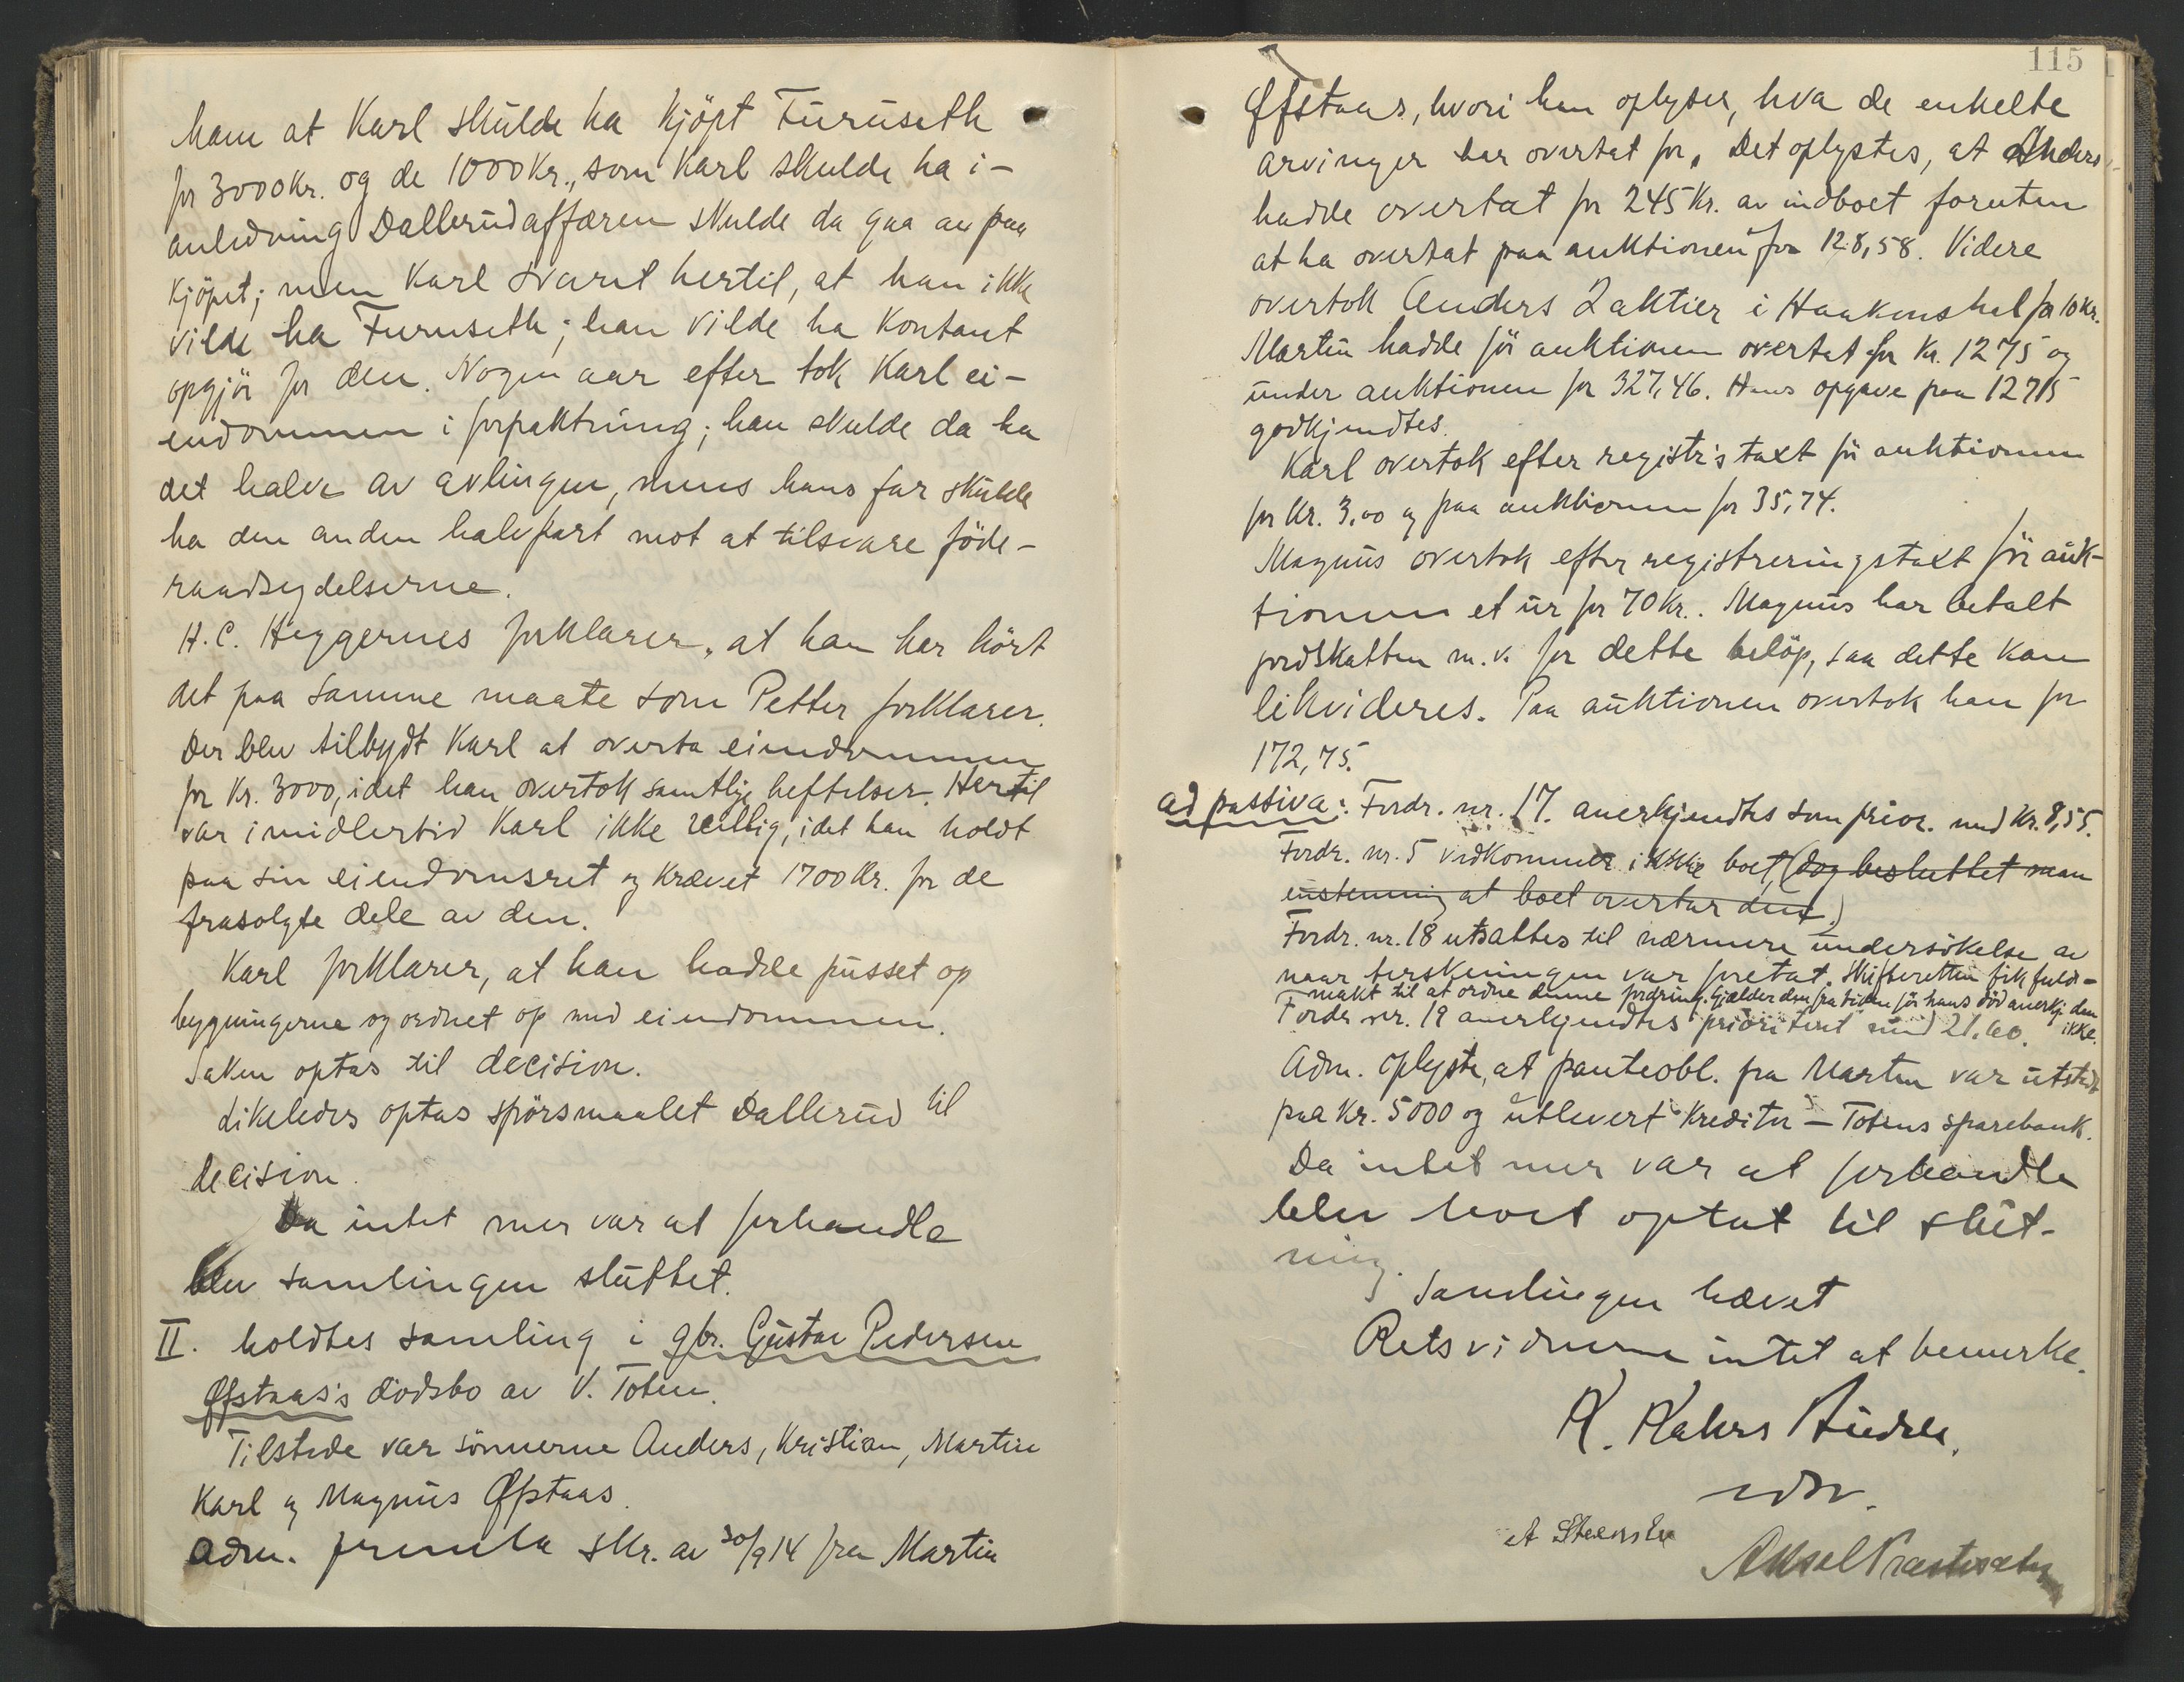 ham at Karl skulde ha kjöpt Furuseth
for 3000 kr. og de 1000 kr., som Karl skulde ha i-
anledning Dallerudaffæren skulde da gaa av paa
kjöpet; men Karl svaret hertil, at han ikke
vilde ha Furuseth; han vilde ha kontant
opgjör for den. Nogen aar efter tok Karl ei-
endommen i forpaktning; han skulde da ha
det halve av avlingen, mens hans far skulde
ha den anden halvpart mot at tilsvare föde-
raadsydelserne.
H.C. Heggernes forklarer, at han har hört
det paa samme maate som Petter forklarer.
Der blev tilbydt Karl at overta eiendommen
for Kr. 3000, idet han overtok samtlige heftelser. Hertil
var imidlertid Karl ikke villig, idet han holdt
paa sin eiendomsret og krævet 1700 kr. for de
frasolgte dele av den.
Karl forklarer, at han hadde pusset op
bygningerne og ordnet op med eiendommen.
Saken optas til decision.
Likeledes optas spörsmaalet Dallerud til
decision.
Da intet mer var at forhandle
blev samlingen sluttet.
II. holdtes samling i gbr. Gustav Pedersen
Øfstaas's dödsbo av V. Toten.
Tilstede var sönnerne Anders, Kristian, Martin
Karl og Magnus Øfstaas.
Adm. fremla skr. av 30/9 14 fra Martin
115
Øfstaas, hvori han oplyser, hva de enkelte
arvinger har overtat for. Det oplystes, at Anders
hadde overtat for 245 Kr. av indboet foruten
at ha overtat paa auktionen for 128,58. Videre
overtok Anders 2 aktier i Haakonshal for 10 kr.
Martin hadde för auktionen overtat for Kr. 1275 og
under auktionen for 327,46. Hans opgave paa 1275
godkjendtes.
Karl overtok efter registr's taxt för auktionen
for Kr. 3,00 og paa auktionen for 35,74.
Magnus overtok efter registreringstaxt för auk-
tionen et ur for 70 Kr.. Magnus har betalt
jordskatten m.v. for dette belöp, saa dette kan
likvideres. Paa auktionen overtok han for
172,75.
ad passiva: Fordr. nr. 17. anerkjendtes som prior. med Kr. 8,55.
Fordr. nr. 5 vedkommer ikke boet, (dog besluttet man
enstemmig at boet overtar den.)
Fordr. nr. 18 utsattes til nærmere undersökelse av
naar terskningen var foretat. Skifteretten fik fuld-
makt til at ordne denne fordring. Gjælder den fra tiden för hans död anerkj. den
ikke.
Fordr. nr. 19 anerkjendtes prioritert med 21.60.
Adm. oplyste, at panteobl. fra Martin var utstedt
paa Kr. 5000 og utlevert kreditor - Totens sparebank.
Da intet mer var at forhandle
blev boet optat til slut-
ning.
Samlingen hævet
Retsvidnerne intet at bemerke.
K. Kahrs
Aksel Præstesæter